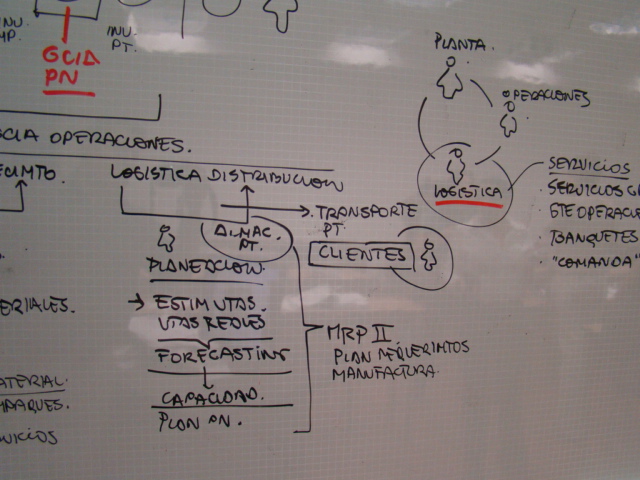 INV.
MP.
INV.
PT.
GCIA
PN
GCIA OPERACIONES.
LOGISTICA DISTRIBUCION
TRANSPORTE
PT.
ALMAC.
PT.
CLIENTES
PLANEACION.
ESTIM VTAS.
VTAS REALES
FORECASTING
CAPACIDAD.
PLAN PN.
MRP II
PLAN REQUERIMTOS
MANUFACTURA
ERIALES.
ATERIAL.
MPAQUES.
PLANTA.
OPERACIONES
LOGISTICA
SERVICIOS
• SERVICIOS G
• GTE OPERACIO
• BANQUETES
• "COMANDA"